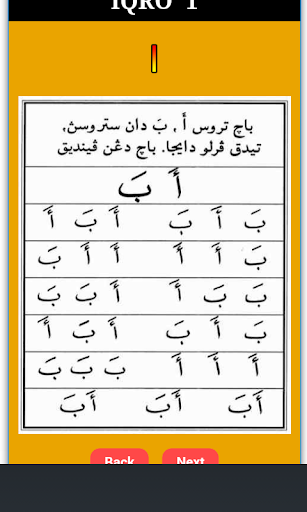 IQRO 1
باچ تروس أَ , بَ دان ستروسڽ,
تيدق ڤرلو دايجا. باچ دڠن ڤينديق
أَ بَ
بَ أَ بَ أَ بَ أَ
بَ أَ أَ أَ أَ بَ
بَ بَ أَ أَ بَ بَ
بَ أَ بَ أَ بَ أَ
أَ أَ أَ بَ بَ بَ
أَبَ أَبَ أَبَ
Back Next